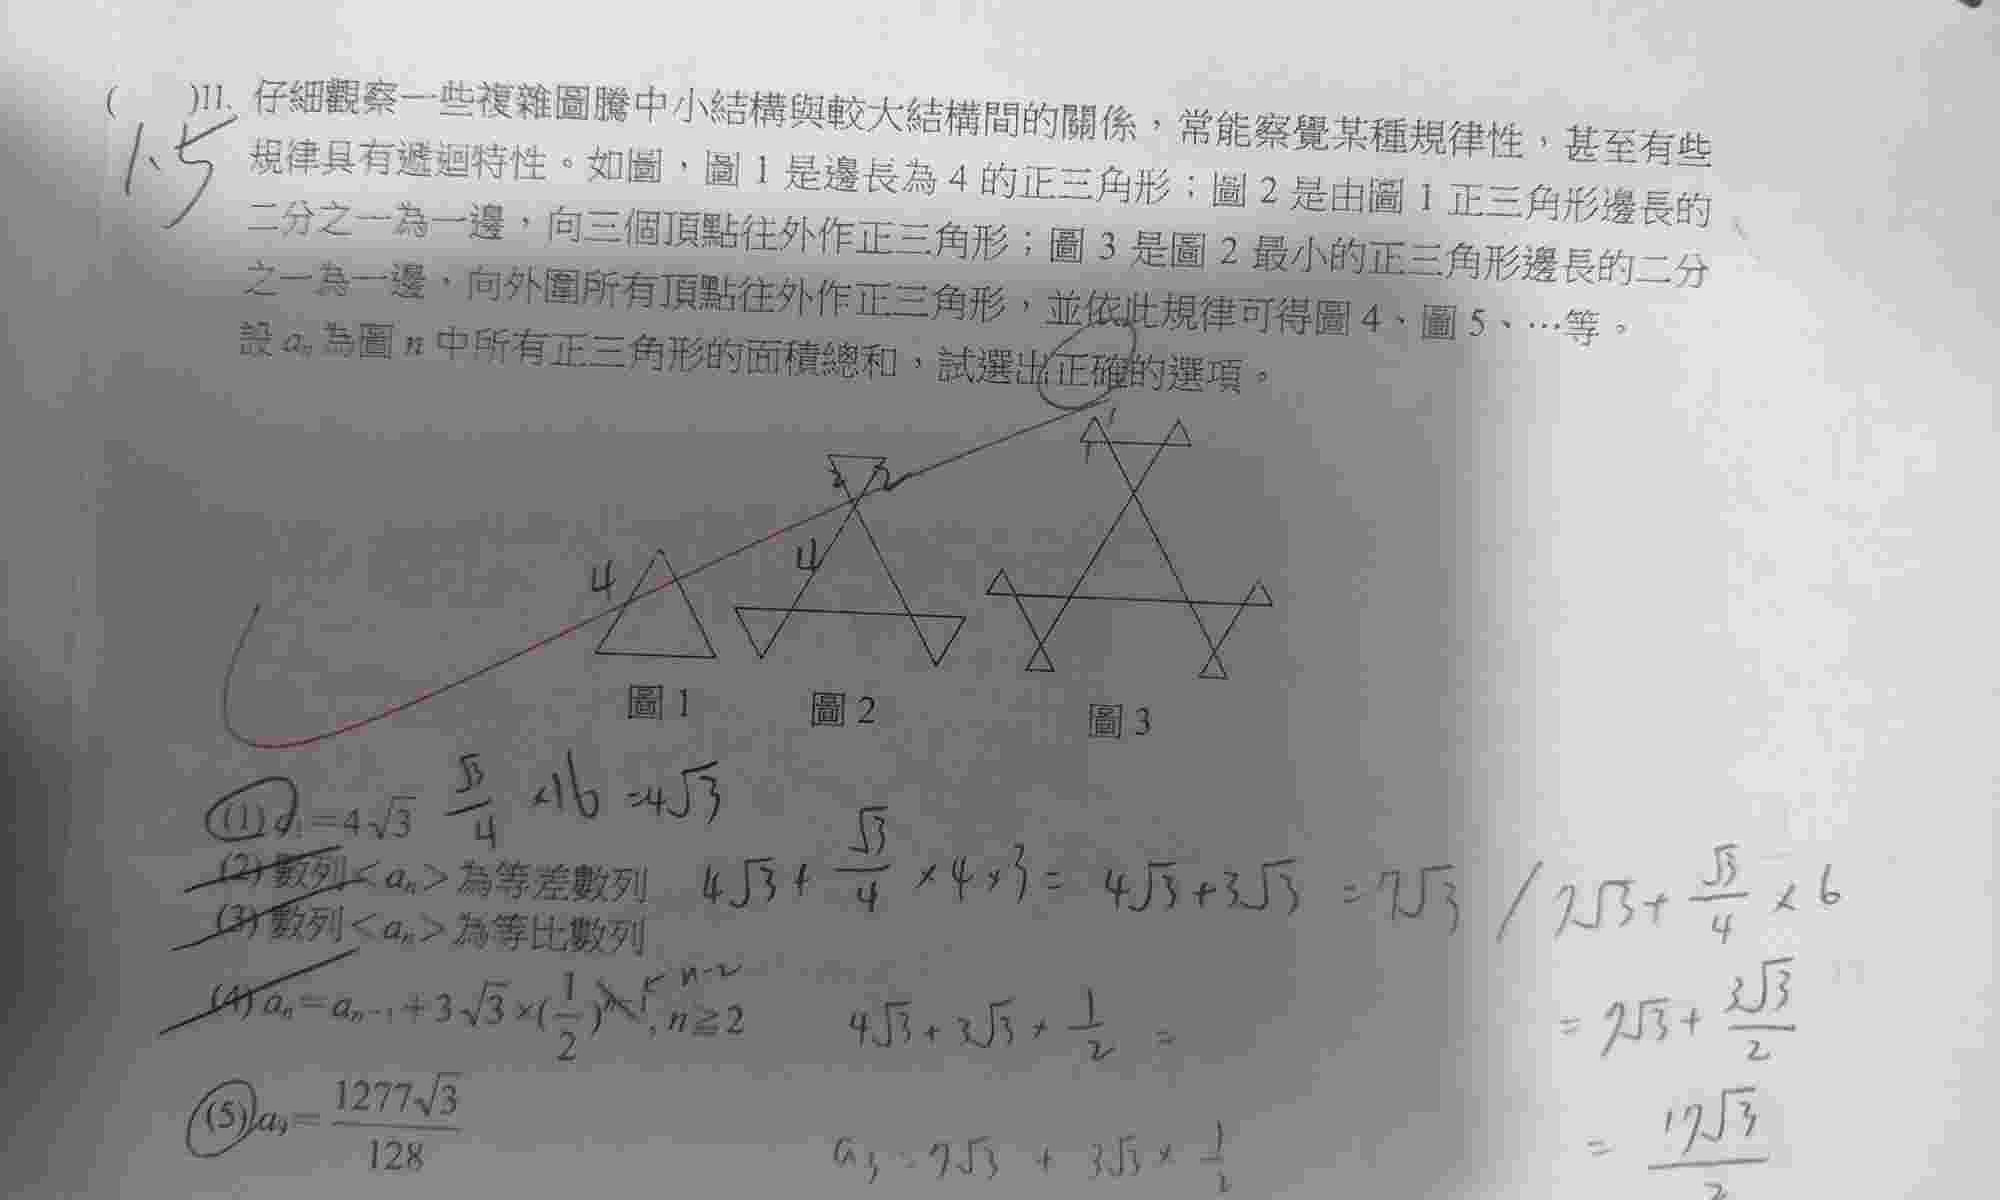 ( )11. 仔細觀察一些複雜圖騰中小結構與較大結構間的關係，常能察覺某種規律性，甚至有些
1.5
規律具有遞迴特性。如圖，圖 1 是邊長為 4 的正三角形；圖 2 是由圖 1 正三角形邊長的
二分之一為一邊，向三個頂點往外作正三角形；圖 3 是圖 2 最小的正三角形邊長的二分
之一為一邊，向外圍所有頂點往外作正三角形，並依此規律可得圖 4、圖 5、…等。
設 aₙ 為圖 n 中所有正三角形的面積總和，試選出正確的選項。
1
1
2 2
4 4
圖 1 圖 2 圖 3
(1) a₁=4√3 √3/4 ×16 =4√3
(2) 數列<aₙ>為等差數列 4√3+ √3/4 ×4×3= 4√3+3√3 =7√3 / 7√3+ √3/4 ×6
(3) 數列<aₙ>為等比數列
(4) aₙ=aₙ₋₁+3√3×(1/2)ⁿ⁻¹, n≧2 n-2 4√3+3√3× 1/2 = =7√3+ 3√3/2
(5) a₉= 1277√3/128 a₃=7√3 + 3√3× 1/2 = 17√3/2